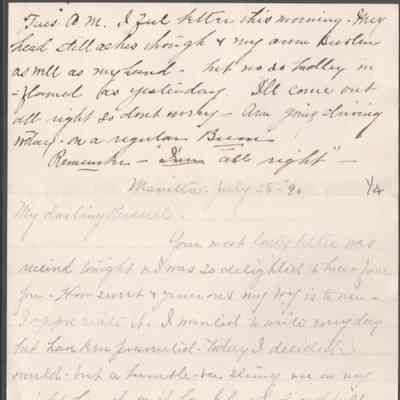 Tues A.M. I feel better this morning. My
head still aches though & my arm swollen
as well as my hand - but not so badly in
-flamed as yesterday. I'll come out
all right so dont worry - Am going driving
today - on a regular Bum
Remember - "I'm all right" -
Marietta. July 28 - 90 1/4
My darling Russell.
Your most loving letter was
received tonight & I was so delighted to hear from
you - How sweet & generous my boy is to me -
I appreciate it. I wanted to write every day
but have been prevented. Today I decided I
would - but a bumble-bee stung me on my